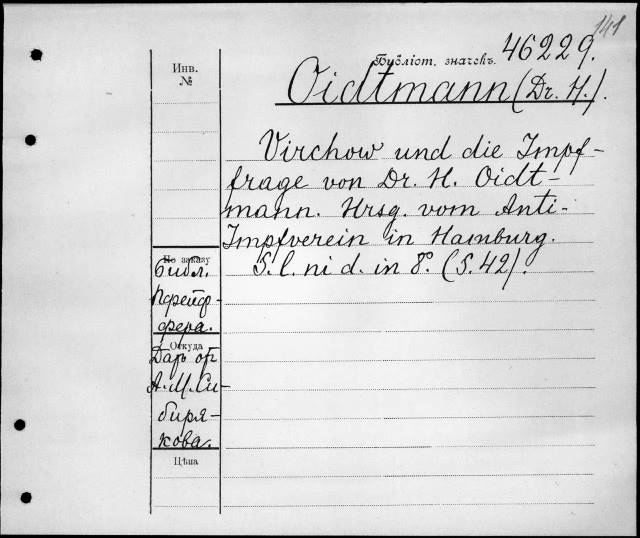 141
Библіот. значекъ. 46229.
Инв.
№
Oidtmann (Dr. H.).
Virchow und die Impf-
frage von Dr. H. Oidt-
mann. Hrsg. vom Anti-
Impfverein in Hamburg.
S. l. ni d. in 8°. (S. 42).
По заказу
Библ.
Пфейф-
фера.
Откуда
Даръ от
А. М. Си-
биря-
кова.
Цѣна